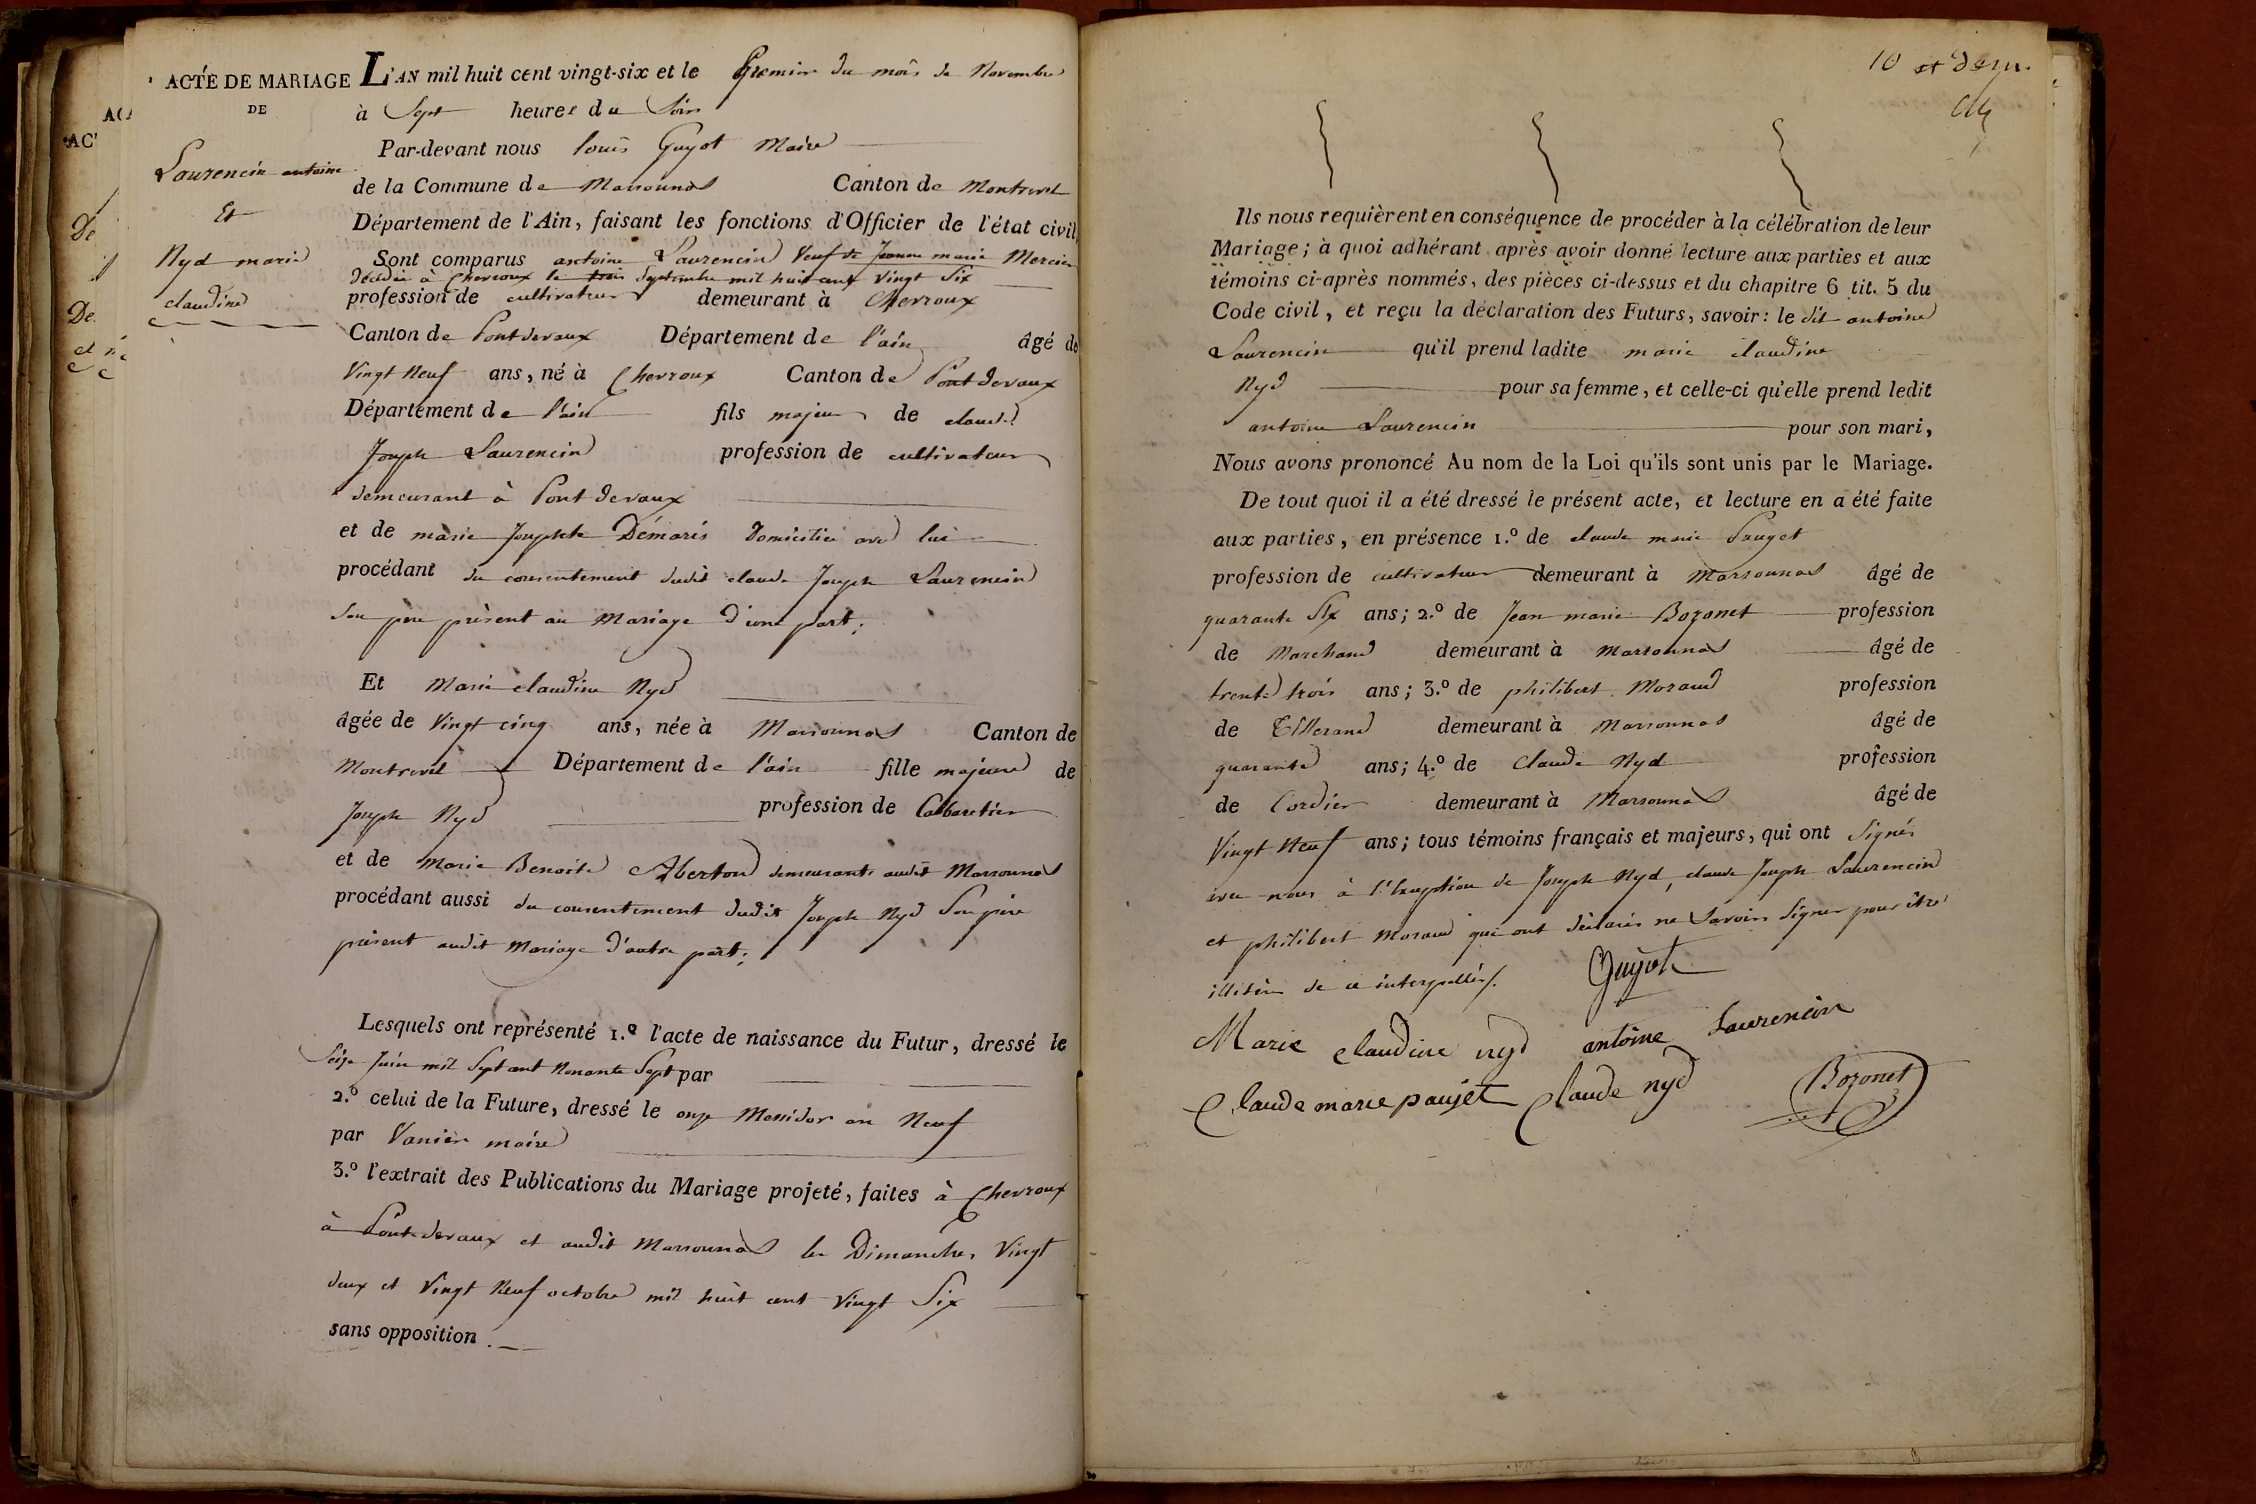 ACTE DE MARIAGE
DE
Laurencin antoine
Et
Nyd marie
claudine
L'AN mil huit cent vingt-six et le Premier du mois de Novembre
à Sept heures du Soir
Par-devant nous louis Guyot Maire
de la Commune de Marsonnas Canton de Montrevel
Département de l'Ain, faisant les fonctions d'Officier de l'état civil,
Sont comparus antoine Laurencin Veuf de Jeanne marie Mercier
décédée à Chevroux le trois Septembre mil huit cent Vingt Six
profession de cultivateur demeurant à Chevroux
Canton de Pontdevaux Département de l'ain âgé de
Vingt Neuf ans, né à Chevroux Canton de Pontdevaux
Département de l'ain fils majeur de claude
Joseph Laurencin profession de cultivateur
demeurant à Pont devaux
et de marie Josephte Démaris domiciliée avec lui
procédant du consentement dudit claude Joseph Laurencin
Son père présent au Mariage d'une part;
Et Marie claudine Nyd
âgée de Vingt cinq ans, née à Marsonnas Canton de
Montrevel Département de l'ain fille majeure de
Joseph Nyd profession de Cabaretier
et de Marie Benoite Aberton demeurants audit Marsonnas
procédant aussi du consentement dudit Joseph Nyd Son père
présent audit Mariage d'autre part;
Lesquels ont représenté 1.º l'acte de naissance du Futur, dressé le
Seize Juin mil Sept cent Nonante Sept par
2.º celui de la Future, dressé le onze Messidor an Neuf
par Vanier maire
3.º l'extrait des Publications du Mariage projeté, faites à Chevroux
à Pont-devaux et audit Marsonnas les Dimanches Vingt
deux et Vingt Neuf octobre mil huit cent Vingt Six
sans opposition.
10 et dern.
Ils nous requièrent en conséquence de procéder à la célébration de leur
Mariage; à quoi adhérant après avoir donné lecture aux parties et aux
témoins ci-après nommés, des pièces ci-dessus et du chapitre 6 tit. 5 du
Code civil, et reçu la déclaration des Futurs, savoir: le dit antoine
Laurencin qu'il prend ladite marie claudine
Nyd pour sa femme, et celle-ci qu'elle prend ledit
antoine Laurencin pour son mari,
Nous avons prononcé Au nom de la Loi qu'ils sont unis par le Mariage.
De tout quoi il a été dressé le présent acte, et lecture en a été faite
aux parties, en présence 1.º de claude marie Pauget
profession de cultivateur demeurant à Marsonnas âgé de
quarante Six ans; 2.º de Jean marie Bozonet profession
de Marchand demeurant à Marsonnas âgé de
trente trois ans; 3.º de philibert Morand profession
de Tisserand demeurant à Marsonnas âgé de
quarante ans; 4.º de Claude Nyd profession
de Cordier demeurant à Marsonnas âgé de
Vingt Neuf ans; tous témoins français et majeurs, qui ont Signés
avec nous à l'Exeption de Joseph Nyd, claude Joseph Laurencin
et philibert Morand qui ont déclarés ne Savoir Signer pour être
illitéré de ce interpellés/.
Guyot
Marie claudine nyd antoine Laurencin
Claude marie paujet Claude nyd Bozonet